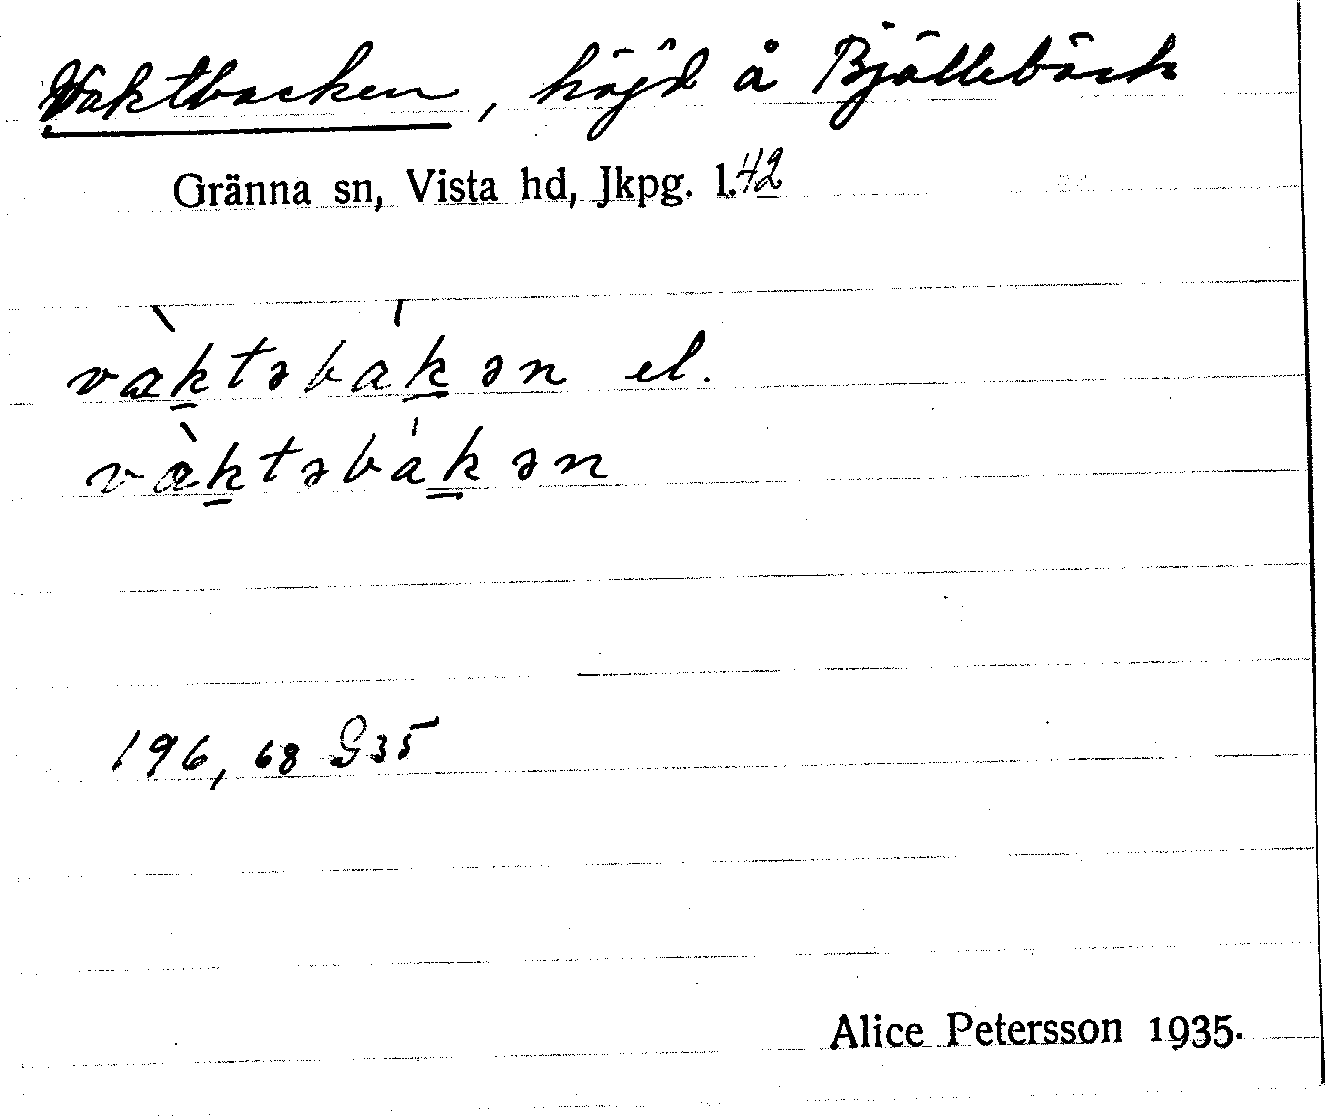 Vaktbacken, höjd å Bjällebäck
Gränna sn, Vista hd, Jkpg. l. 42
vàktəbákən el.
vàktəbákən
196, 68 G35
Alice Petersson 1935.